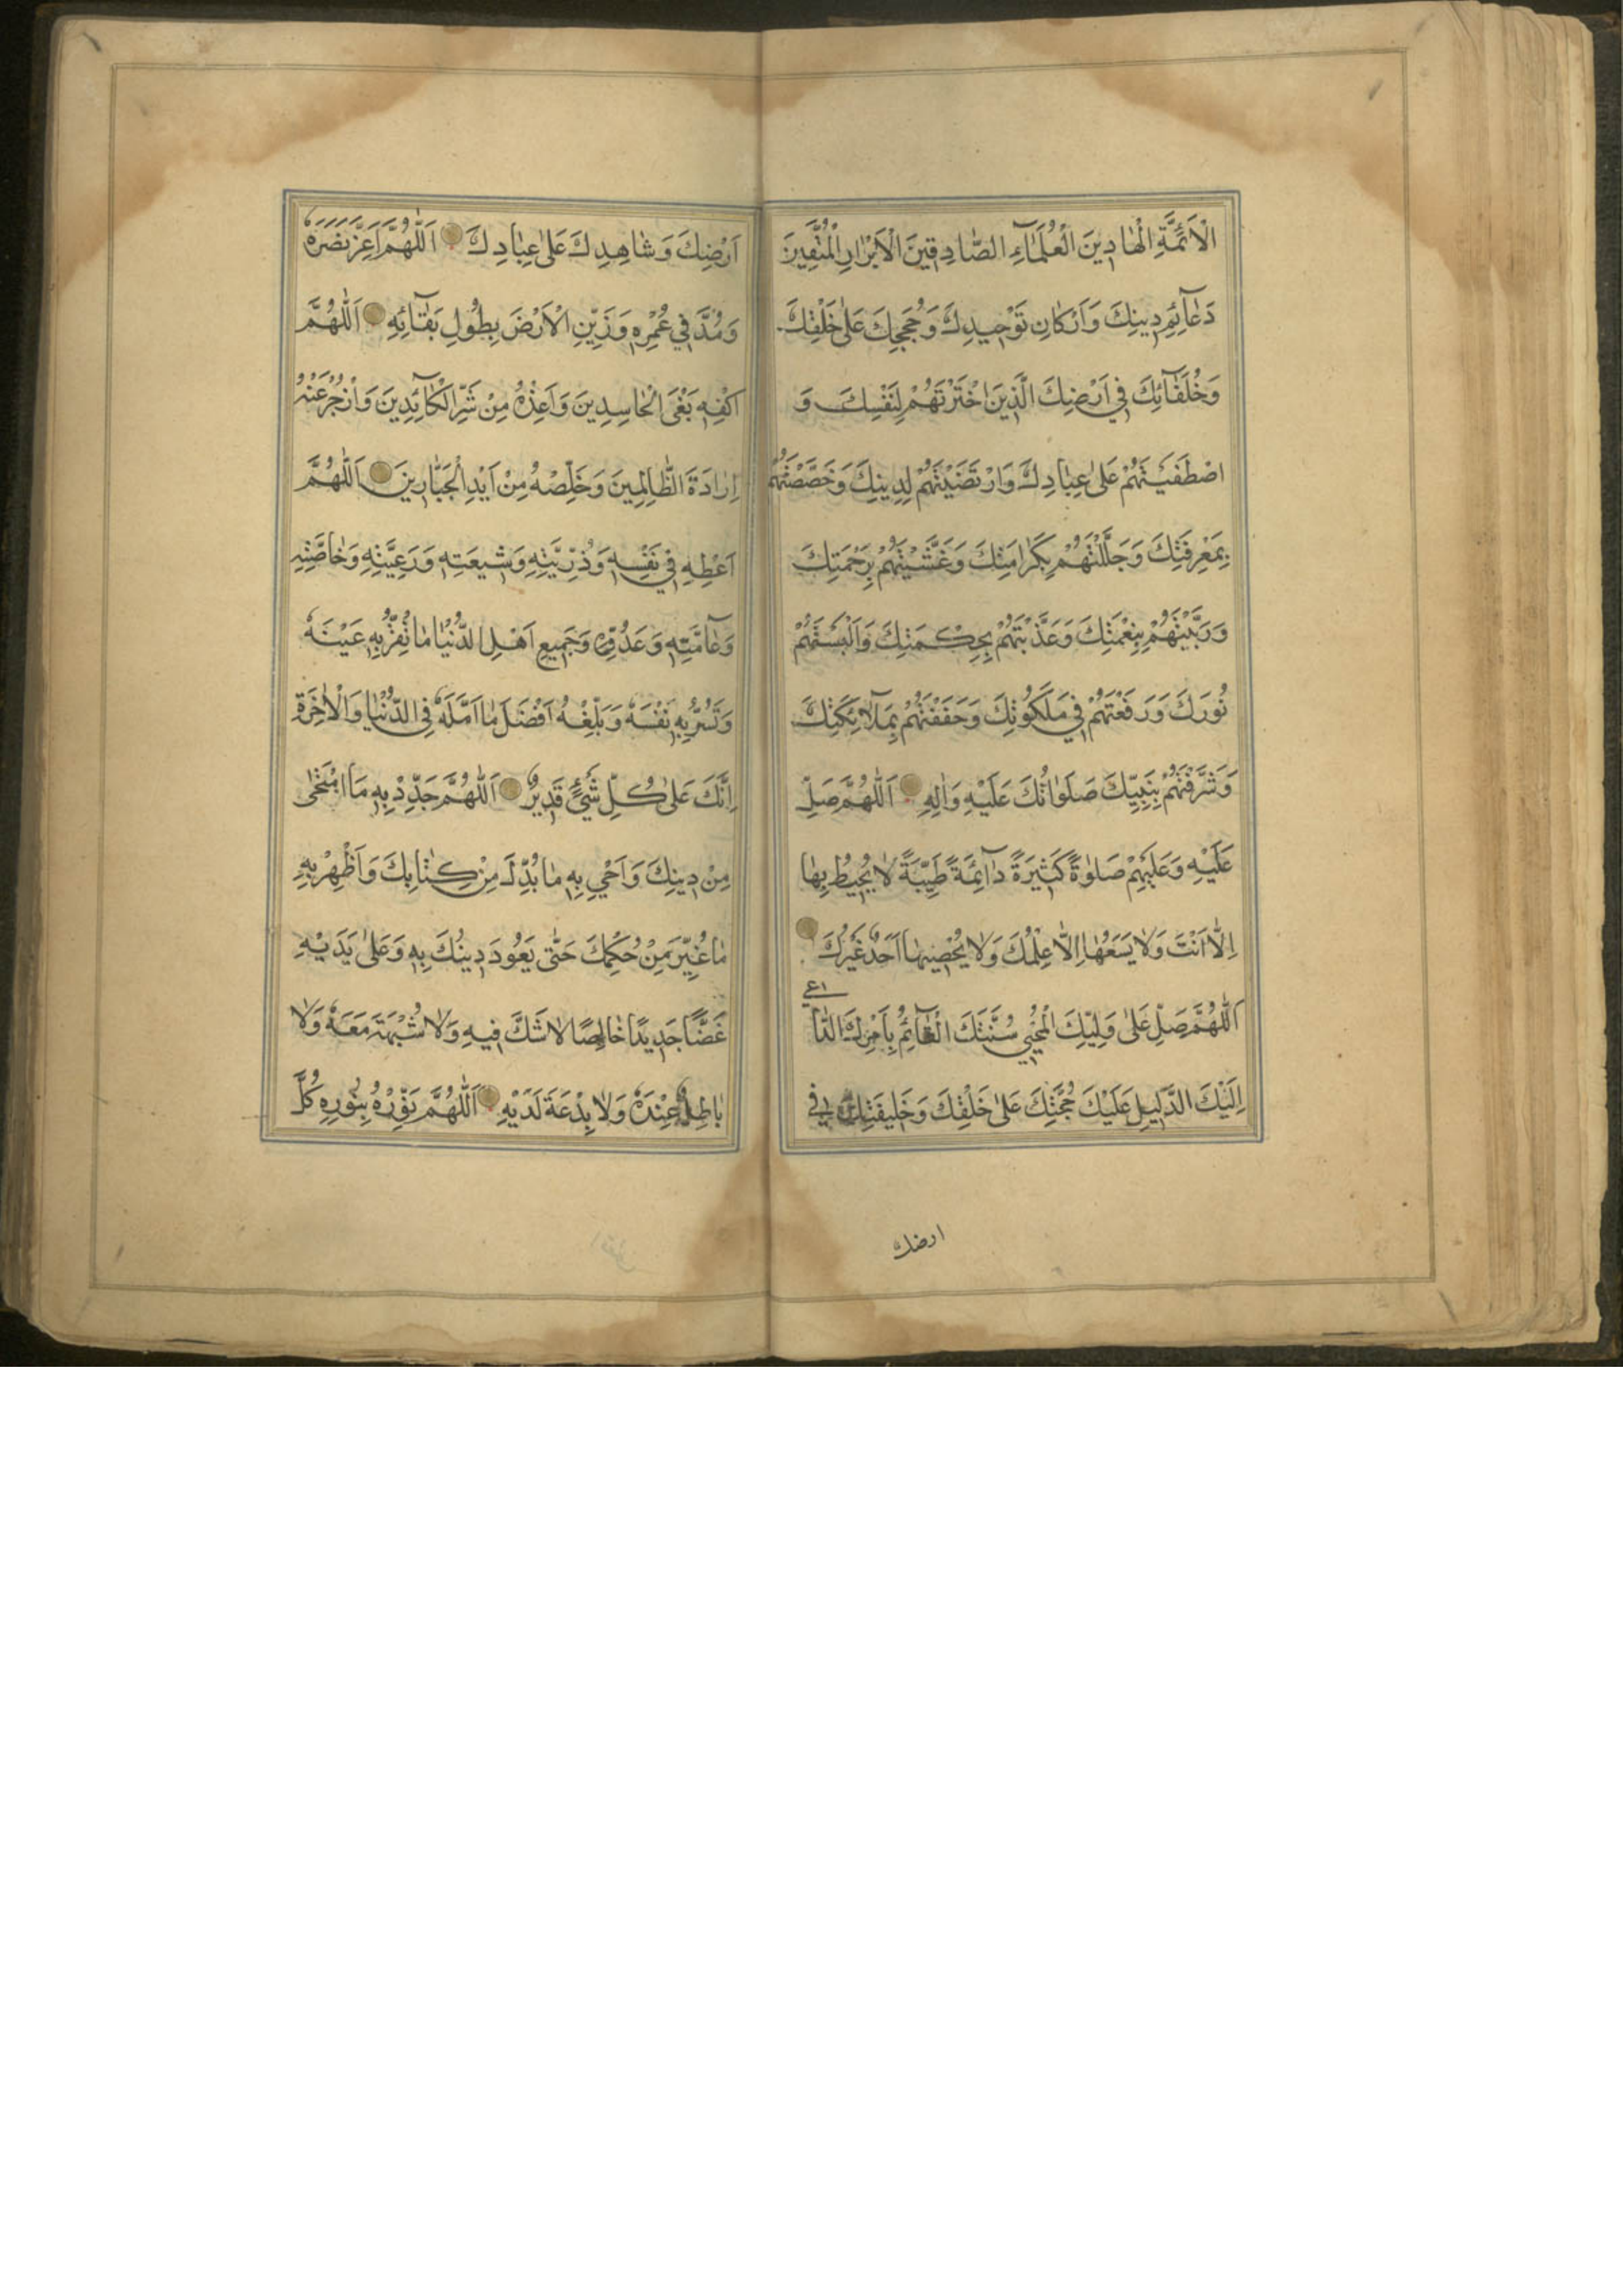 الْاَئِمَّةِ الْهَادِينَ الْعُلَمَآءِ الصَّادِقِينَ الْاَبْرَارِ الْمُتَّقِينَ
دَعَآئِمِ دِينِكَ وَاَرْكَانِ تَوْحِيدِكَ وَحُجَجِكَ عَلٰى خَلْقِكَ
وَخُلَفَآئِكَ فِي اَرْضِكَ الَّذِينَ اخْتَرْتَهُمْ لِنَفْسِكَ وَ
اصْطَفَيْتَهُمْ عَلٰى عِبَادِكَ وَارْتَضَيْتَهُمْ لِدِينِكَ وَخَصَصْتَهُمْ
بِمَعْرِفَتِكَ وَجَلَّلْتَهُمْ بِكَرَامَتِكَ وَغَشَّيْتَهُمْ بِرَحْمَتِكَ
وَرَبَّيْتَهُمْ بِنِعْمَتِكَ وَغَذَّيْتَهُمْ بِحِكْمَتِكَ وَاَلْبَسْتَهُمْ
نُورَكَ وَرَفَعْتَهُمْ فِي مَلَكُوتِكَ وَحَفَفْتَهُمْ بِمَلَآئِكَتِكَ
وَشَرَّفْتَهُمْ بِنَبِيِّكَ صَلَوَاتُكَ عَلَيْهِ وَاٰلِهِ اَللّٰهُمَّ صَلِّ
عَلَيْهِ وَعَلَيْهِمْ صَلٰوةً كَثِيرَةً دَآئِمَةً طَيِّبَةً لَا يُحِيطُ بِهَا
اِلَّا اَنْتَ وَلَا يَسَعُهَا اِلَّا عِلْمُكَ وَلَا يُحْصِيهَا اَحَدٌ غَيْرُكَ
اَللّٰهُمَّ صَلِّ عَلٰى وَلِيِّكَ الْمُحْيِي سُنَّتَكَ الْقَآئِمُ بِاَمْرِكَ الدَّا
اعي
اِلَيْكَ الدَّلِيلِ عَلَيْكَ حُجَّتِكَ عَلٰى خَلْقِكَ وَخَلِيفَتِكَ فِي
ارضك
اَرْضِكَ وَشَاهِدِكَ عَلٰى عِبَادِكَ اَللّٰهُمَّ اَعِزَّ نَصْرَهُ
وَمُدَّ فِي عُمْرِهِ وَزَيِّنِ الْاَرْضَ بِطُولِ بَقَآئِهِ اَللّٰهُمَّ
اكْفِهِ بَغْيَ الْحَاسِدِينَ وَاَعِذْهُ مِنْ شَرِّ الْكَآئِدِينَ وَازْجُرْ عَنْهُ
اِرَادَةَ الظَّالِمِينَ وَخَلِّصْهُ مِنْ اَيْدِ الْجَبَّارِينَ اَللّٰهُمَّ
اَعْطِهِ فِي نَفْسِهِ وَذُرِّيَّتِهِ وَشِيعَتِهِ وَرَعِيَّتِهِ وَخَاصَّتِهِ
وَعَآمَّتِهِ وَعَدُوِّهِ وَجَمِيعِ اَهْلِ الدُّنْيَا مَا تُقِرُّ بِهِ عَيْنَهُ
وَتَسُرُّ بِهِ نَفْسَهُ وَبَلِّغْهُ اَفْضَلَ مَا اَمَّلَهُ فِي الدُّنْيَا وَالْاٰخِرَةِ
اِنَّكَ عَلٰى كُلِّ شَيْءٍ قَدِيرٌ اَللّٰهُمَّ جَدِّدْ بِهِ مَا امْتَحٰى
مِنْ دِينِكَ وَاَحْيِ بِهِ مَا بُدِّلَ مِنْ كِتَابِكَ وَاَظْهِرْ بِهِ
مَا غُيِّرَ مِنْ حُكْمِكَ حَتّٰى يَعُودَ دِينُكَ بِهِ وَعَلٰى يَدَيْهِ
غَضًّا جَدِيدًا خَالِصًا لَا شَكَّ فِيهِ وَلَا شُبْهَةَ مَعَهُ وَلَا
بَاطِلَ عِنْدَهُ وَلَا بِدْعَةَ لَدَيْهِ اَللّٰهُمَّ نَوِّرْهُ بِنُورِهِ كُلَّ